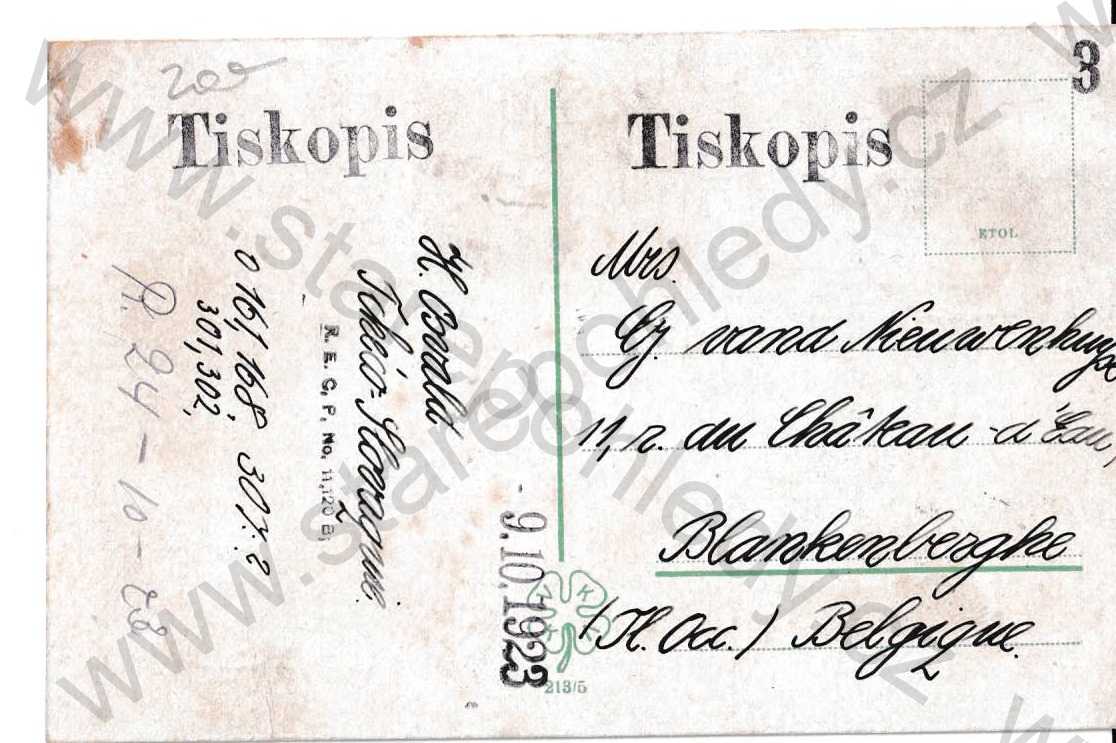 200
Tiskopis
Tiskopis
3
ETOL
H. Oswald
Tchéco-Slovaquie.
R. E. C. P. No. 11,120 B.
0 161, 168, 307.?
301, 302,
R. 24 - 10 - 23
- 9.10.1923
Mrs.
vand Nieuwenhuyse
11, r. du Château-d'Eau,
Blankenberghe
(Fl. Occ.) Belgique.
213/5
www.starepohledy.cz
www.starepohledy.cz